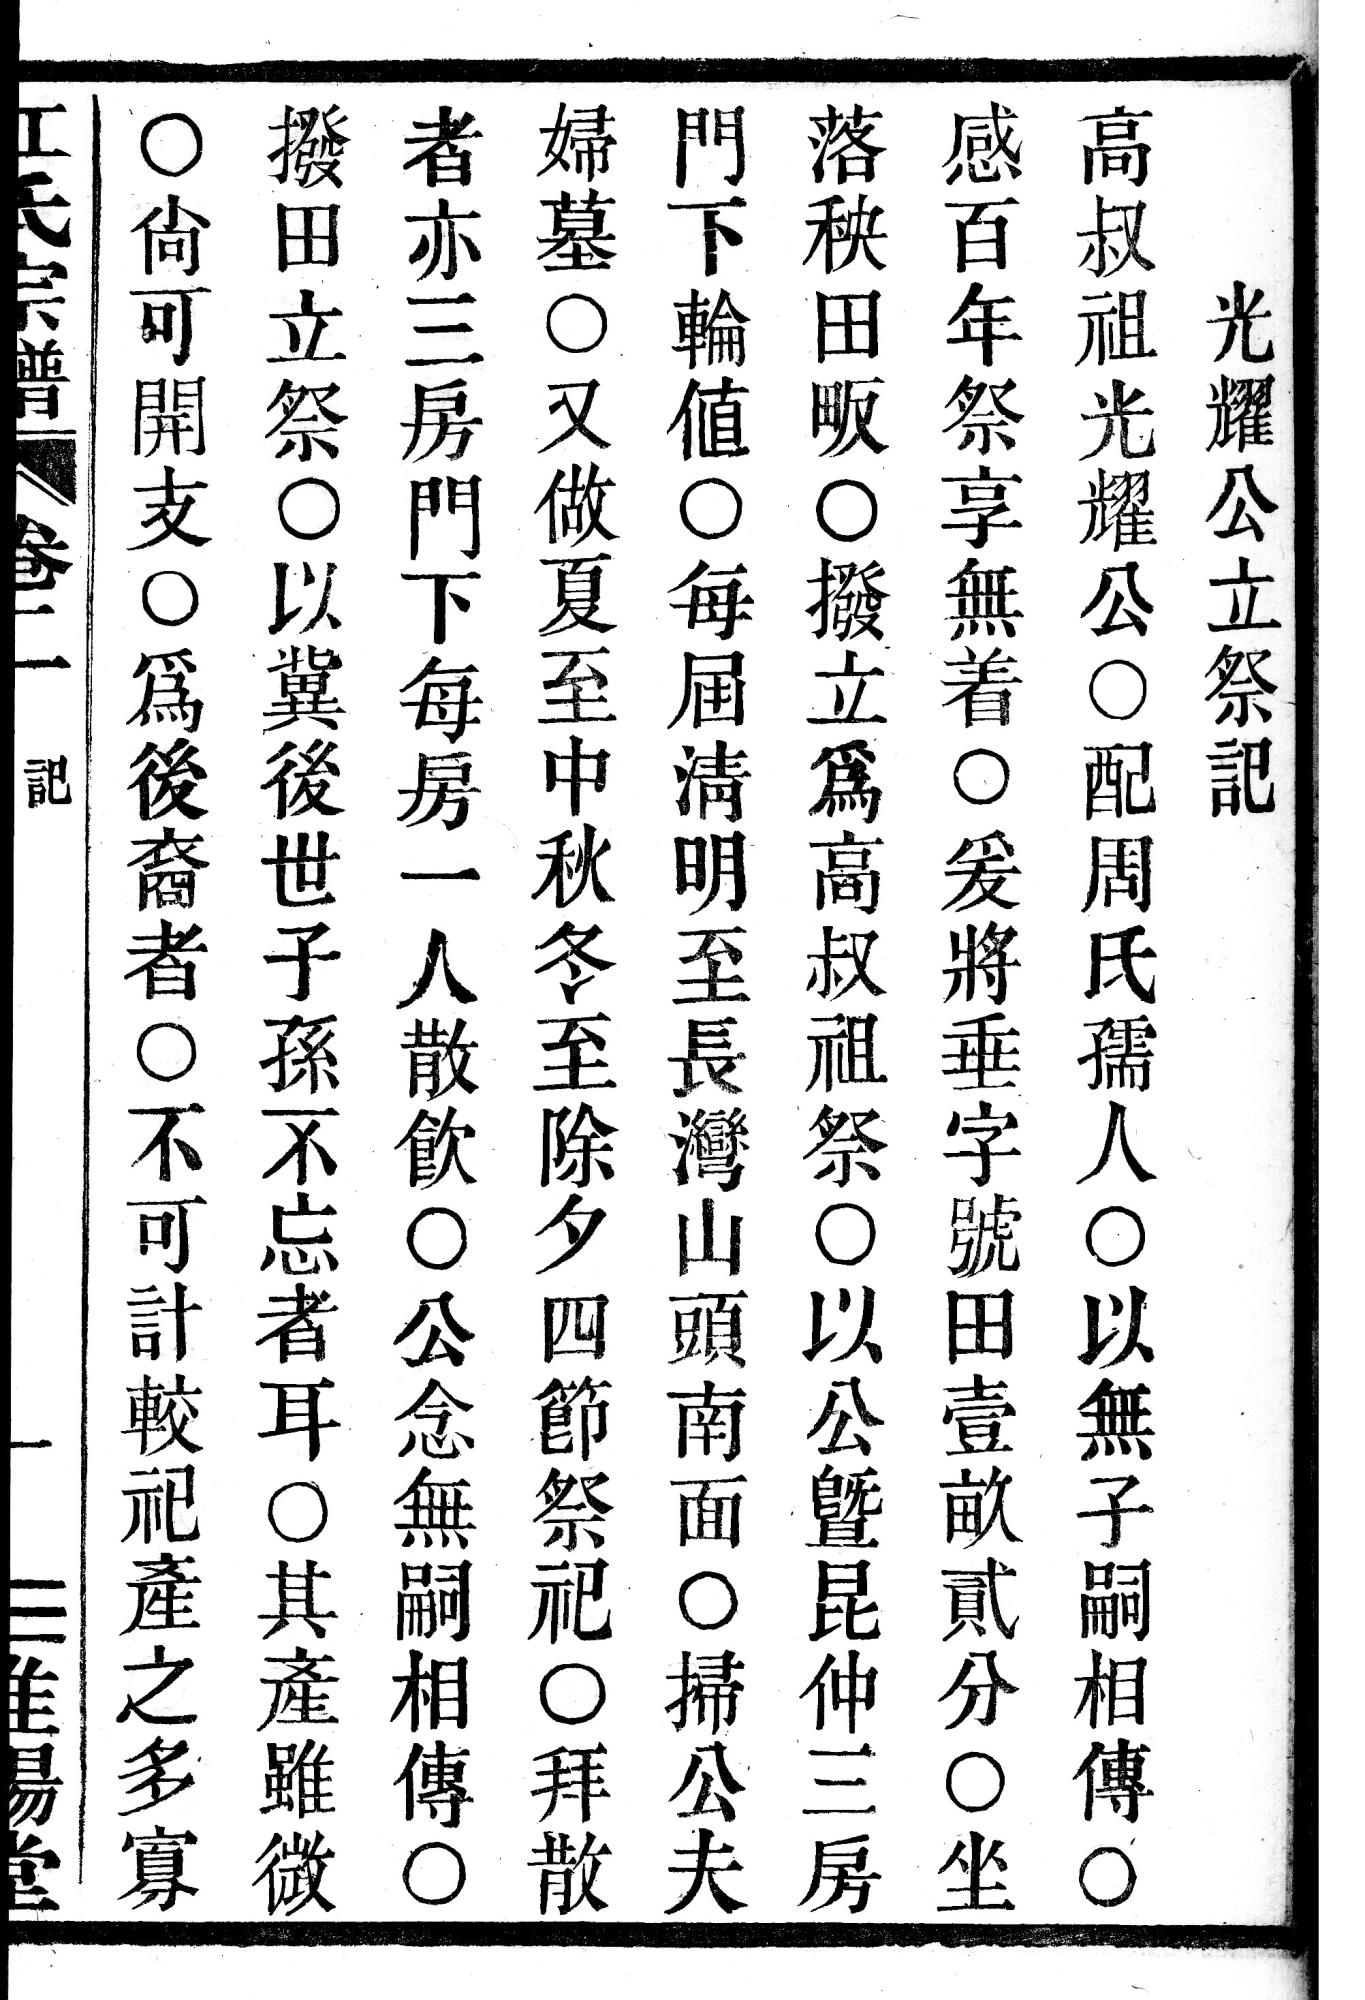 光耀公立祭記
高叔祖光耀公○配周氏孺人○以無子嗣相傳○
感百年祭享無着○爰將垂字號田壹畝貳分○坐
落秧田畈○撥立爲高叔祖祭○以公曁昆仲三房
門下輪値○每屆淸明至長灣山頭南面○掃公夫
婦墓○又做夏至中秋冬至除夕四節祭祀○拜散
者亦三房門下每房一人散飮○公念無嗣相傳○
撥田立祭○以冀後世子孫不忘者耳○其產雖微
○尙可開支○爲後裔者○不可計較祀產之多寡
江氏宗譜 卷二 記 一